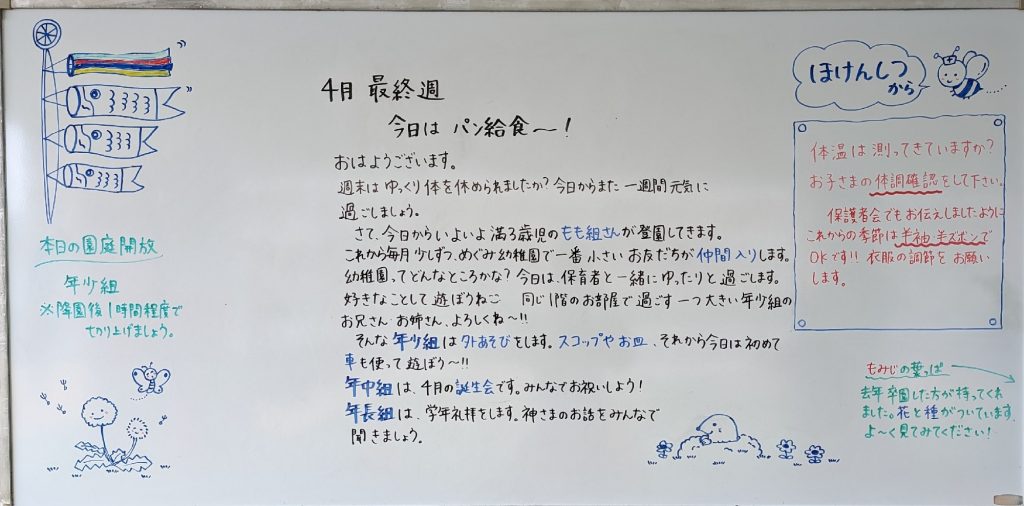 4月 最終週
今日は パン給食〜!
おはようございます。
週末は ゆっくり体を休められましたか?今日からまた 一週間元気に
過ごしましょう。
さて、今日から いよいよ 満3歳児の もも組さんが 登園してきます。
これから毎月 少しずつ、めぐみ幼稚園で一番 小さい お友だちが 仲間入りします。
幼稚園、ってどんなところかな?今日は、保育者と一緒に ゆったりと 過ごします。
好きなことして 遊ぼうねこ 同じ1階のお部屋で過ごす 一つ大きい年少組の
お兄さん お姉さん、よろしくね〜!!
そんな 年少組は 外あそびをします。スコップや お皿、それから今日は 初めて
車も使って 遊ぼう〜!!
年中組は、4月の誕生会です。みんなでお祝いしよう!
年長組は、学年礼拝をします。神さまのお話をみんなで
聞きましょう。
本日の園庭開放
年少組
※降園後 1時間程度で
切り上げましょう。
ほけんしつ
から
体温は 測ってきていますか?
お子さまの 体調確認をして下さい。
保護者会でもお伝えしましたように
これからの季節は 半袖、半ズボンで
OKです!! 衣服の調節を お願い
します。
もみじの葉っぱ
去年 卒園した方が 持ってくれ
ました。花と種がついています。
よ〜く見てみてください!